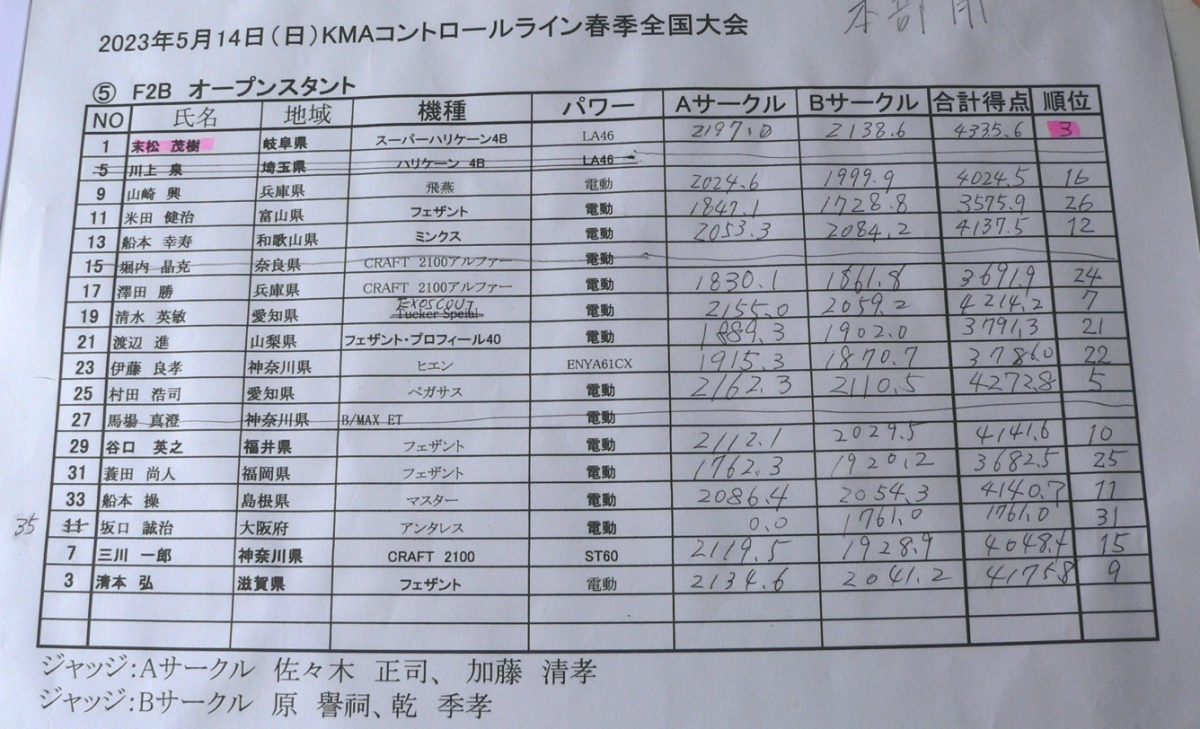 本部用
2023年5月14日(日)KMAコントロールライン春季全国大会
⑤ F2B オープンスタント
NO 氏名 地域 機種 パワー Aサークル Bサークル 合計得点 順位
1 末松 茂樹 岐阜県 スーパーハリケーン4B LA46 2197.0 2138.6 4335.6 3
5 川上 泉 埼玉県 ハリケーン 4B LA46
9 山崎 興 兵庫県 飛燕 電動 2024.6 1999.9 4024.5 16
11 米田 健治 富山県 フェザント 電動 1847.1 1728.8 3575.9 26
13 船本 幸寿 和歌山県 ミンクス 電動 2053.3 2084.2 4137.5 12
15 堀内 晶克 奈良県 CRAFT 2100アルファー 電動
17 澤田 勝 兵庫県 CRAFT 2100アルファー 電動 1830.1 1861.8 3691.9 24
19 清水 英敏 愛知県 EXOSCOUT Tucker Special 電動 2155.0 2059.2 4214.2 7
21 渡辺 進 山梨県 フェザント・プロフィール40 電動 1889.3 1902.0 3791.3 21
23 伊藤 良孝 神奈川県 ヒエン ENYA61CX 1915.3 1870.7 3786.0 22
25 村田 浩司 愛知県 ペガサス 電動 2162.3 2110.5 4272.8 5
27 馬場 真澄 神奈川県 B/MAX ET 電動
29 谷口 英之 福井県 フェザント 電動 2112.1 2029.5 4141.6 10
31 蓑田 尚人 福岡県 フェザント 電動 1762.3 1920.2 3682.5 25
33 船本 操 島根県 マスター 電動 2086.4 2054.3 4140.7 11
35 11 坂口 誠治 大阪府 アンタレス 電動 0.0 1761.0 1761.0 31
7 三川 一郎 神奈川県 CRAFT 2100 ST60 2119.5 1928.9 4048.4 15
3 清本 弘 滋賀県 フェザント 電動 2134.6 2041.2 4175.8 9
ジャッジ:Aサークル 佐々木 正司、 加藤 清孝
ジャッジ:Bサークル 原 譽祠、乾 季孝